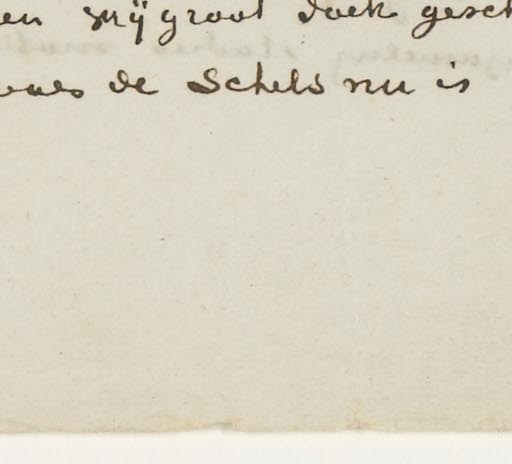 en vrij groot doek gesch
de Schets nu is